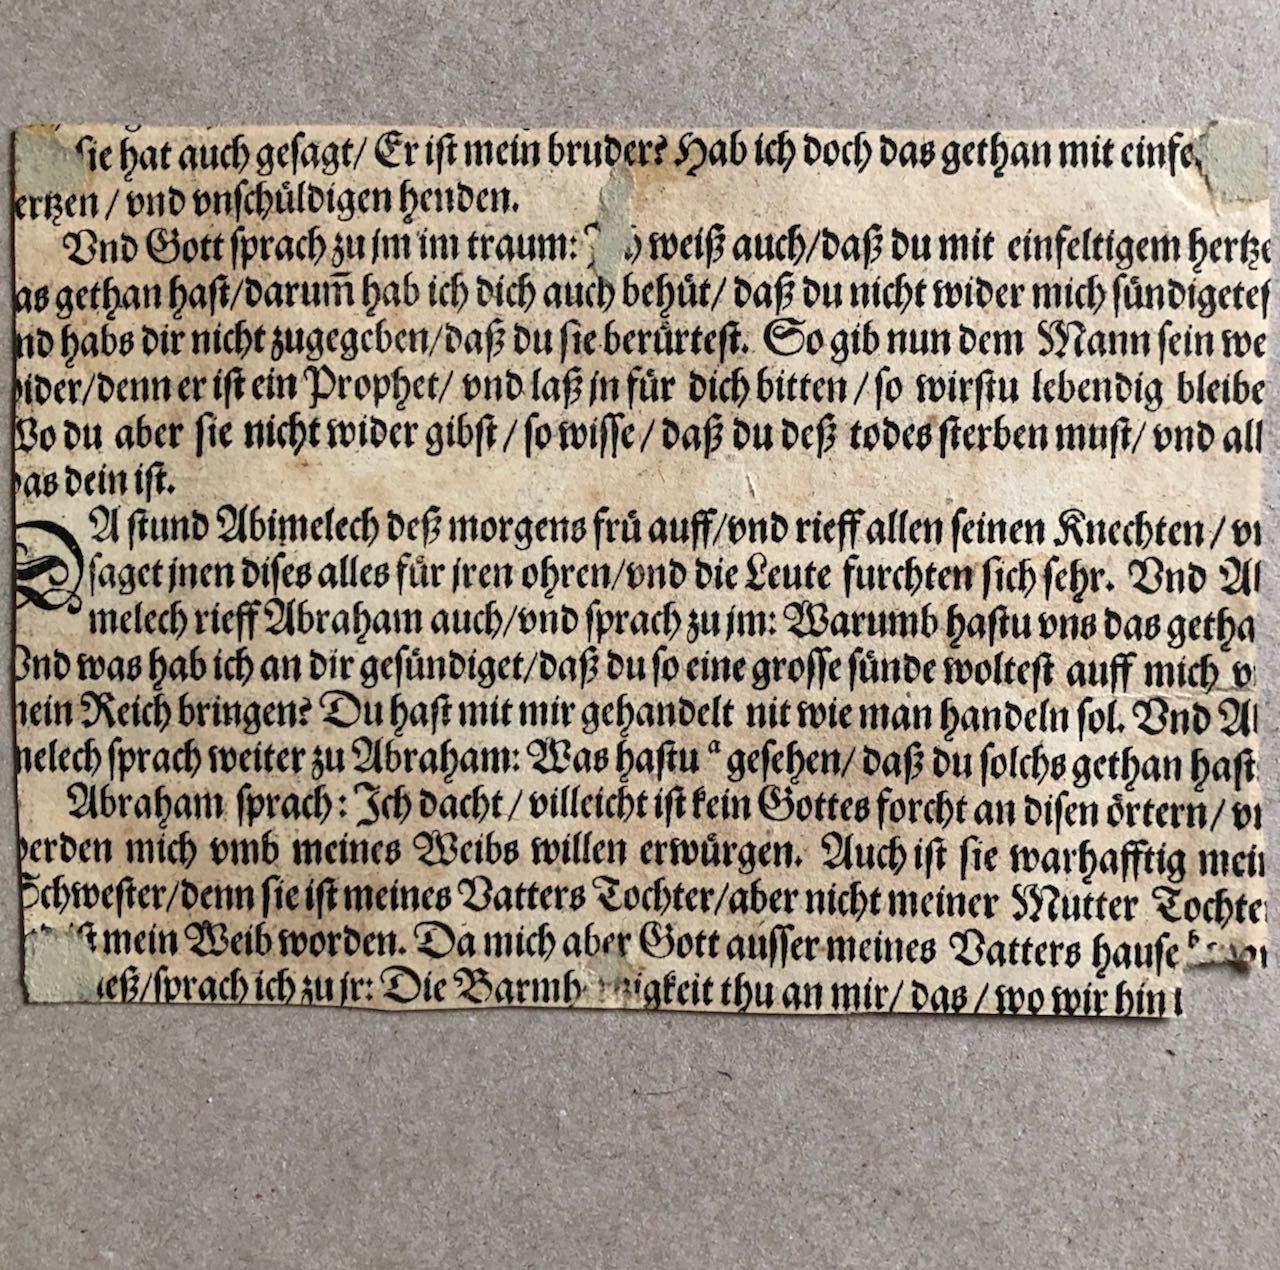 sie hat auch gesagt/ Er ist mein bruder? Hab ich doch das gethan mit einfe
ertzen / vnd vnschüldigen henden.
Vnd Gott sprach zu jm im traum: weiß auch/daß du mit einfeltigem hertze
as gethan hast/darum̃ hab ich dich auch behüt/ daß du nicht wider mich sündigetes
nd habs dir nicht zugegeben/daß du sie berürtest. So gib nun dem Mann sein we
ider/denn er ist ein Prophet/ vnd laß jn für dich bitten / so wirstu lebendig bleibe
Wo du aber sie nicht wider gibst / so wisse / daß du deß todes sterben must/ vnd all
as dein ist.
DA stund Abimelech deß morgens frü auff/vnd rieff allen seinen Knechten / v
saget jnen dises alles für jren ohren/vnd die Leute furchten sich sehr. Vnd A
melech rieff Abraham auch/vnd sprach zu jm: Warumb hastu vns das getha
Vnd was hab ich an dir gesündiget/daß du so eine grosse sünde woltest auff mich v
ein Reich bringen? Du hast mit mir gehandelt nit wie man handeln sol. Vnd A
melech sprach weiter zu Abraham: Was hastu ᵃ gesehen/ daß du solchs gethan hast
Abraham sprach: Ich dacht / villeicht ist kein Gottes forcht an disen örtern/ v
erden mich vmb meines Weibs willen erwürgen. Auch ist sie warhafftig mei
Schwester/denn sie ist meines Vatters Tochter/aber nicht meiner Mutter Tochte
mein Weib worden. Da mich aber Gott ausser meines Vatters hause
ieß/sprach ich zu jr: Die Barmh igkeit thu an mir/ das / wo wir hin